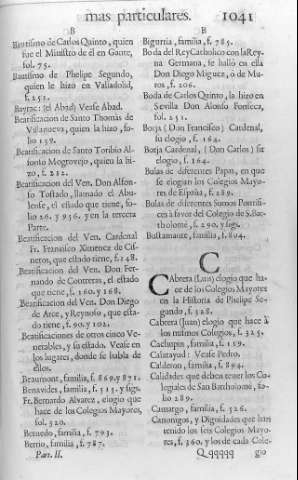 mas particulares. 1041
B
Bautismo de Carlos Quinto, quien
fue el Ministro de él en Gante,
fol. 75.
Bautismo de Phelipe Segundo,
quien le hizo en Valladolid,
f. 251.
(el Abad) Vease Abad.
Beatificacion de Santo Thomàs de
Villanueva, quien la hizo, fo-
lio 139.
Beatificacion de Santo Toribio Al-
fonso Mogrovejo, quien la hi-
zo, f. 212.
Beatificacion del Ven. Don Alfon-
so Tostado, llamado el Abu-
lense, el estado que tiene, fo-
lio 26. y 956. y en la tercera
Parte.
Beatificacion del Ven. Cardenal
Fr. Francisco Ximenez de Cis-
neros, que estado tiene, f. 148.
Beatificacion del Ven. Don Fer-
nando de Contreras, el estado
que tiene, f. 160. y 168.
Beatificacion del Ven. Don Diego
de Arce, y Reynoso, que esta-
do tiene, f. 90. y 102.
Beatificaciones de otros cinco Ve-
nerables, y su estado. Vease en
los lugares, donde se habla de
ellos.
Beaumont, familia, f. 869. y 871.
Benavides, familia, f. 515. y sigs.
Fr. Bernardo Alvarez, elogio que
hace de los Colegios Mayores,
fol. 320.
Bernedo, familia, f. 793.
Berrio, familia, f. 787.
Part. II.
B
Bigurria, familia, f. 785.
Boda del Rey Catholico con la Rey-
na Germana, se halló en ella
Don Diego Miguez, ò de Mu-
ros, f. 206.
Boda de Carlos Quinto, la hizo en
Sevilla Don Alonso Fonseca,
fol. 251.
Borja (Don Francisco) Cardenal,
su elogio, f. 164.
Borja Cardenal, (Don Carlos) su
elogio, f. 164.
Bulas de diferentes Papas, en que
se elogian los Colegios Mayo-
res de España, f. 289.
Bulas de diferentes Sumos Pontifi-
ces à favor del Colegio de S. Bar-
tholomé, f. 290. y sigs.
Bustamante, familia, f. 804.
C
Cabrera (Luis) elogio que ha-
ce de los Colegios Mayores
en la Historia de Phelipe Se-
gundo, f. 328.
Cabrera (Juan) elogio que hace à
los mismos Colegios, f. 325.
Cachupin, familia, f. 159.
Calatayud: Vease Pedro.
Calderon, familia, f. 894.
Calidades que deben tener los Co-
legiales de San Bartholomé, fo-
lio 289.
Camargo, familia, f. 526.
Canonigos, y Dignidades que han
tenido los seis Colegios Mayo-
res, f. 360. y los de cada Cole-
Qqqqqq gio